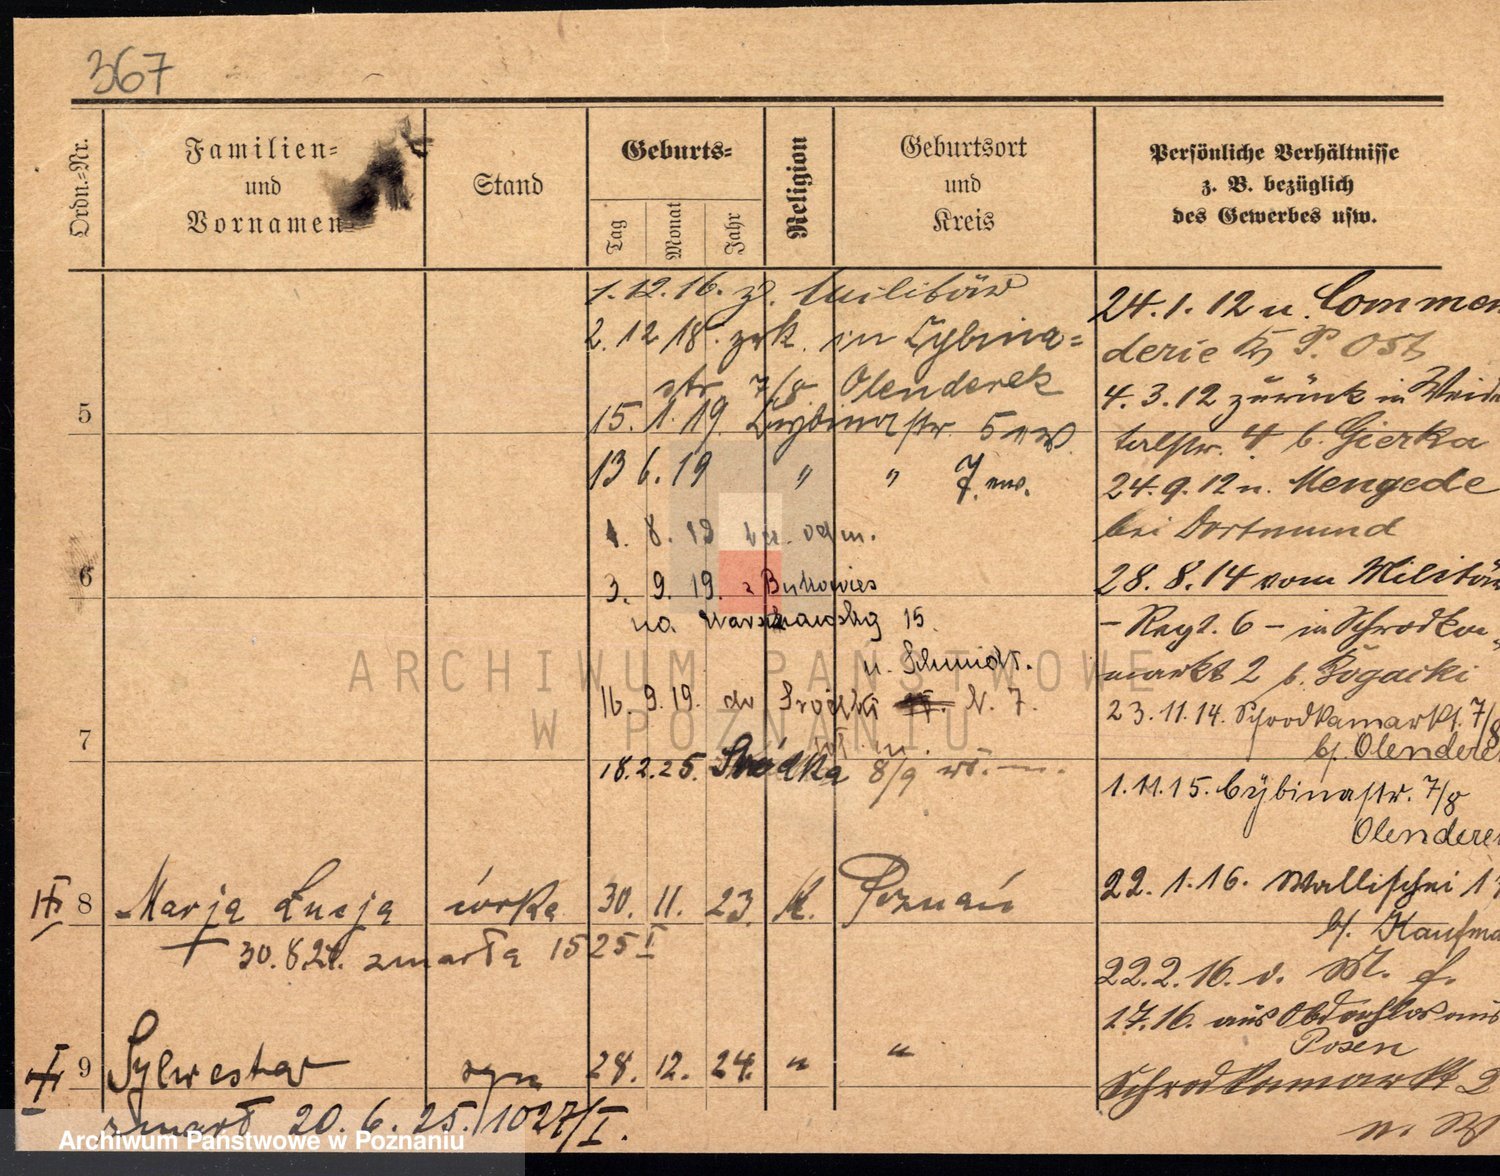 367
Ordn.-Nr.
Familien-
und
Vornamen
Stand
Geburts-
Tag
Monat
Jahr
Religion
Geburtsort
und
Kreis
Persönliche Verhältnisse
z. B. bezüglich
des Gewerbes usw.
1.12.16. z. Militär
2.12 18. zrk. in Cybina-
str. 7/8. Olenderek
5
15. 1. 19. Cybinastr. 5
13 6. 19 " " 7.
1. 8. 19
6
3. 9. 19. z Bukowies
na Warszawską 15.
u. Schmidt.
16. 9. 19. do Sródki N. 7.
7
18.2.25. Sródka 8/9
8 Marja Łucja córka 30. 11. 23. K. Poznań
30.8.24. zmarła 1525 I
9 Sylwester syn 28. 12. 24. " "
zmarł 20. 6. 25. 1027/I.
24.1.12 u. Commen
derie P. Ost
4.3.12 zurück in
talstr. 4 b. Gierka
24.9.12 n. Mengede
bei Dortmund
28. 8. 14 vom Militär
- Regt. 6 - in Schrodka
markt 2 b. Rogacki
23.11.14. Schrodkamarkt. 7/8
b. Olendere
1.11.15. Cybinastr. 7/8
Olendere
22. 1. 16. Wallischei
b. Kaufma
22.2.16.
1.7.16. aus Obdachlos aus
Posen
Schrodkamarkt 2
ARCHIWUM PAŃSTWOWE
W POZNANIU
Archiwum Państwowe w Poznaniu